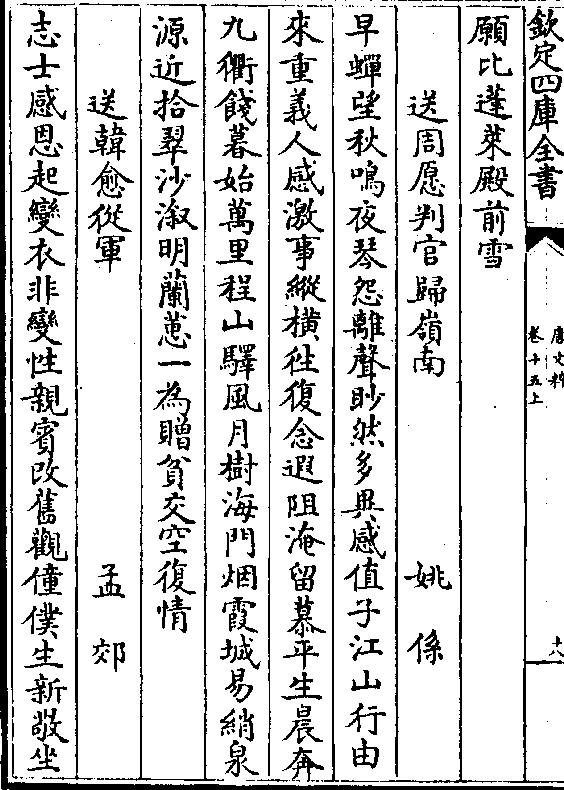 欽定四庫全書
唐文粹
卷十五上
十八
願比蓬萊殿前雪
送周愿判官歸嶺南
姚係
早蟬望秋鳴夜琴怨離聲眇然多異感值子江山行由
來重義人感激事縱橫往復念遐阻淹留慕平生晨奔
九衢餞暮始萬里程山驛風月樹海門烟霞城易綃泉
源近拾翠沙溆明蘭蕙一為贈貧交空復情
送韓愈從軍
孟郊
志士感恩起變衣非變性親賓改舊觀僮僕生新敬坐